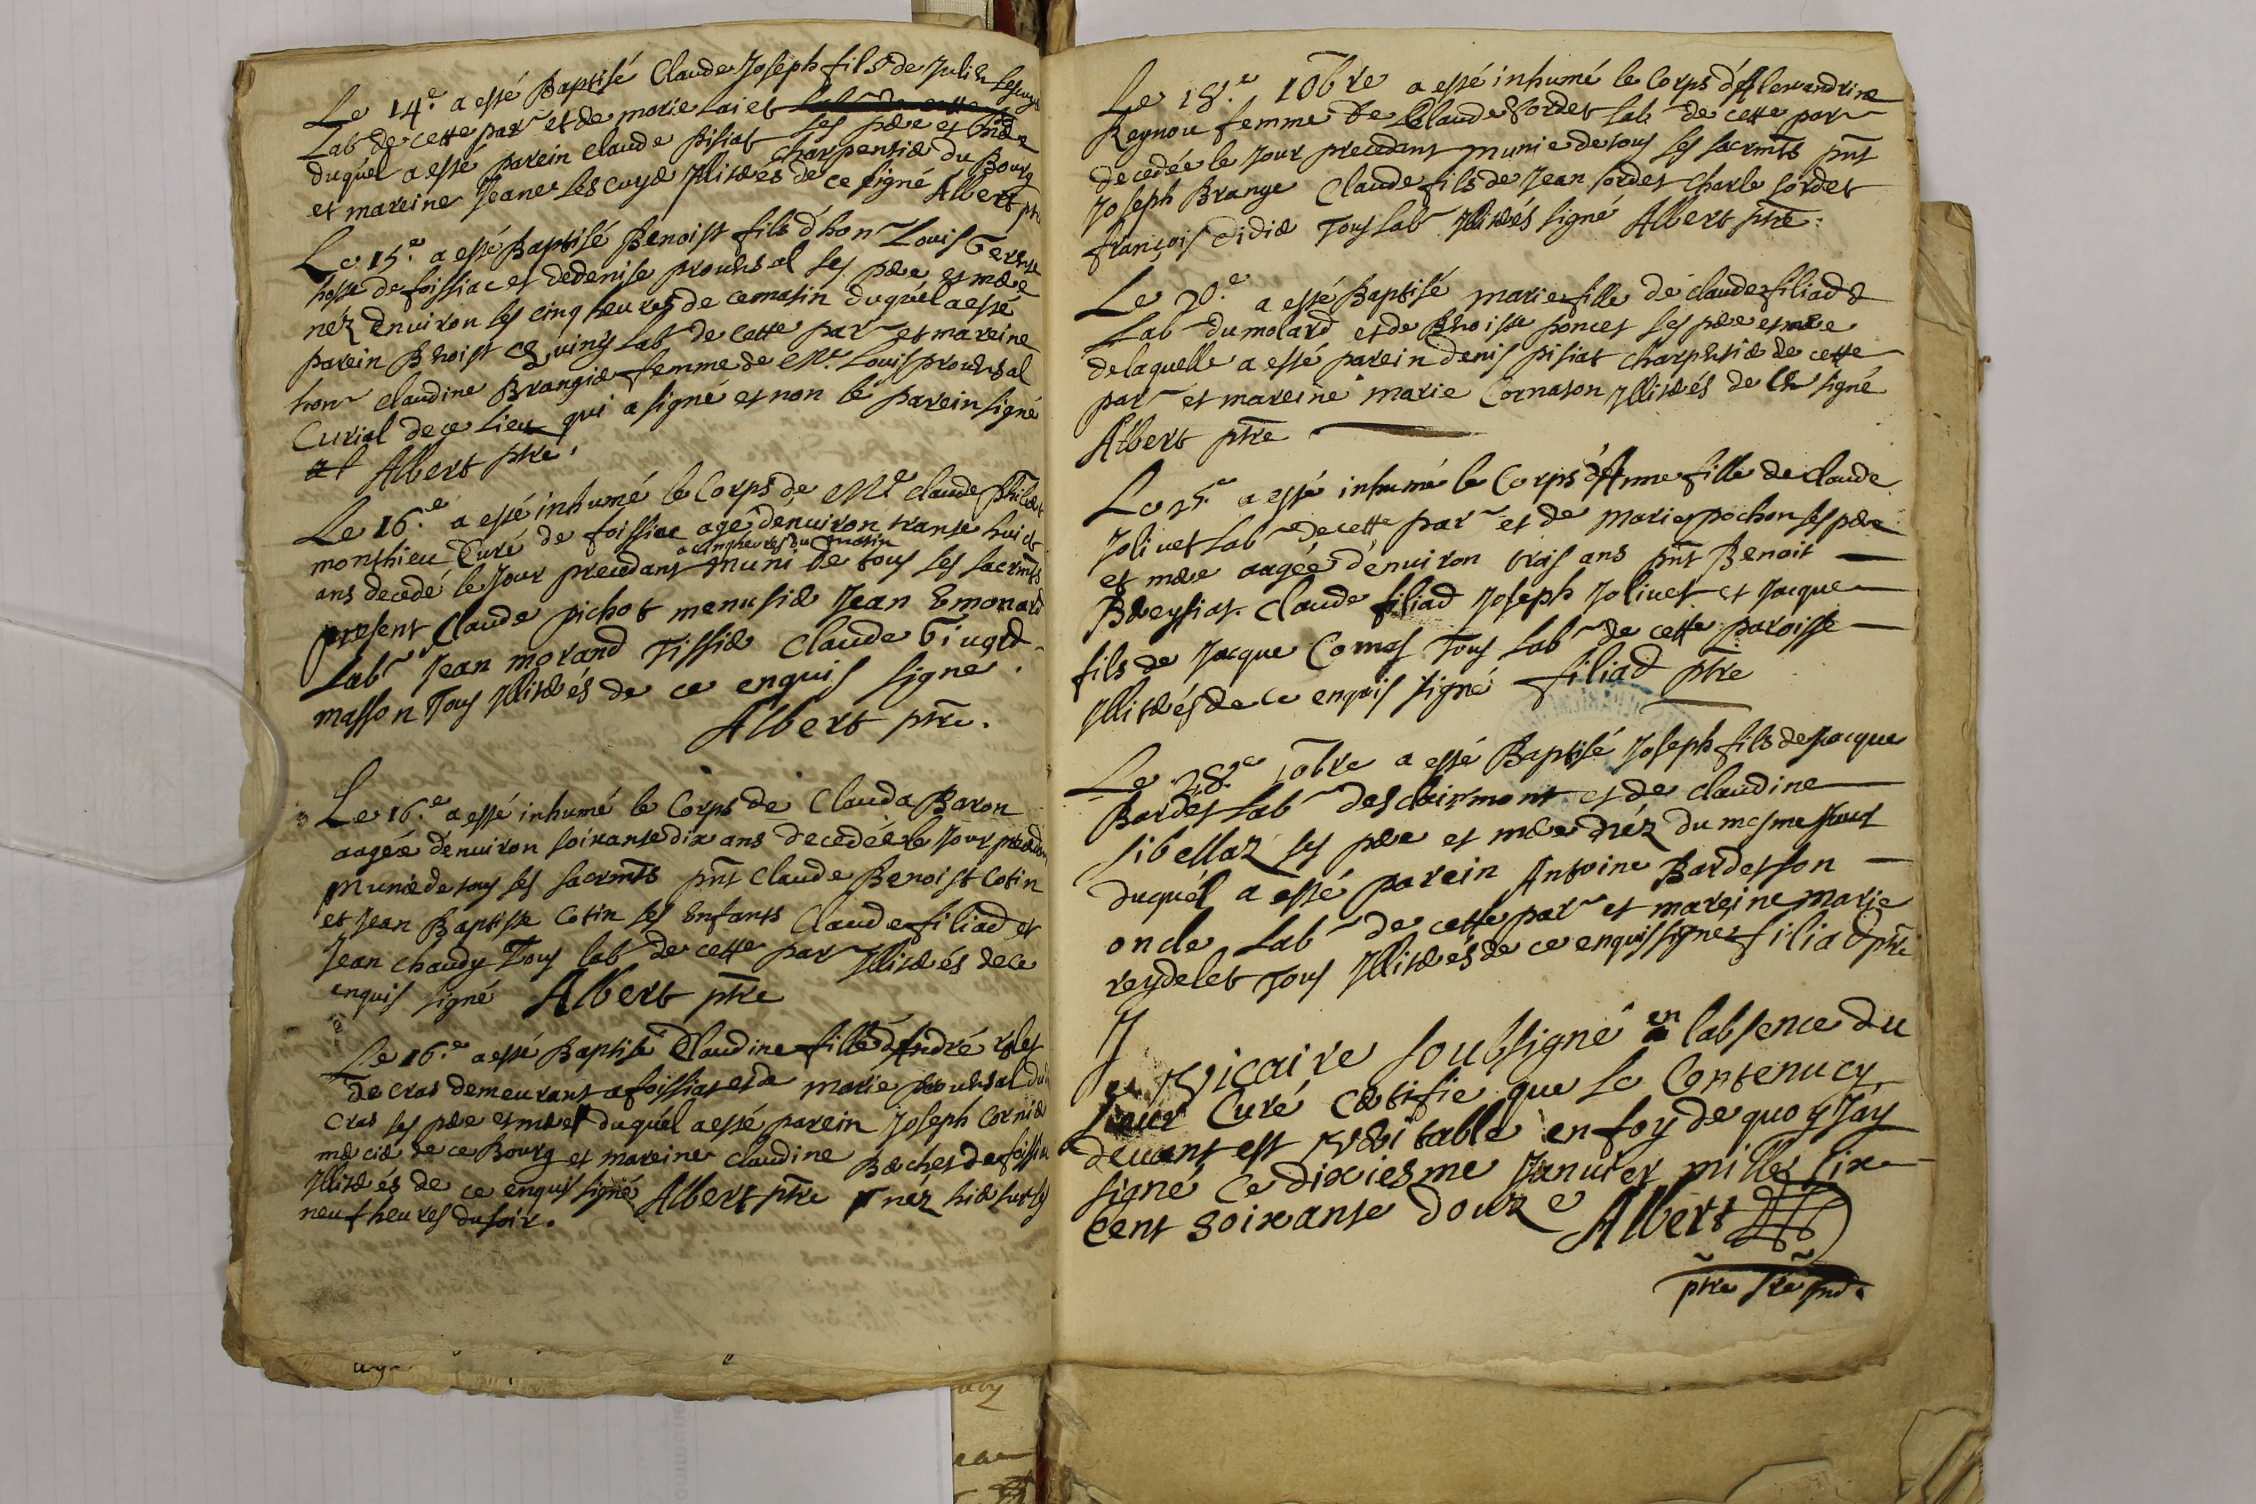 Le 14.e a esté Baptisé Claude Joseph fils de Julien
Lab de cette parr et de marie Laiet ses pere et mere
duquel a esté parein claude pisiat charpentier du Bourg
et mareine Jeane Lescuyer Illiterés de ce signé Albert ptre
Le 15.e a esté Baptisé Benoist fils d'honr Louis
hoste de foissiac et de denise prouensal ses pere et mere
néz denuiron les cinq heures de ce matin duquél a esté
parein Benoist Lab de cette parr et mareine
honr claudine Brangier femme de Mr. Louis prouensal
Curial de ce Lieu qui a signé et non le parein signé
Albert ptre.
Le 16.e a esté inhumé le Corps de Mre claude
monthieu Curé de foissiac agé denuiron trante huict
a cinq heures du matin
ans decedé le Jour precedant muni de tous les sacrmts
present Claude pichot menusier Jean Emonard
Labr Jean morand Tissier Claude
masson Tous Illiterés de ce enquis signe.
Albert ptre.
Le 16.e a esté inhumé le Corps de Clauda Baron
aagée denuiron soixante dix ans decedée le Jour
munie de tous ses sacrmts pnt Claude Benoist Cotin
et Jean Baptiste Cotin ses Enfants Claude filiad et
Jean chaudy Tous lab de cette parr Illiterés de ce
enquis signé Albert ptre
Le 16.e a esté Baptisé Claudine fille d'André
de Cras demeurant a foissiat et de marie prouensal
Cras ses pere et mere duquél a esté parein Joseph Cornier
mercier de ce Bourg et mareine claudine Bochet de
Illiterés de ce enquis signé Albert ptre néz hier sur les
neuf heures du soir.
Le 18.e 10bre a esté inhumé le Corps d'Alexandrine
Reynou femme de Claude Sordet Lab de cette parr
decedée le Jour precedant munie de tous ses sacrmts pnt
Joseph Brange Claude fils de Jean sordet Charle sordet
françois didier Tous Lab Illiterés signé Albert ptre.
Le 20.e a esté Baptisé marie fille de claude filiad
Lab du molard et de Benoiste poncet ses pere et mere
de laquelle a esté parein denis pisiat charpentier de cette
parr et mareine marie Cornaton Illiterés de ce signé
Albert ptre
Le 25.e a esté inhumé le Corps d'Anne fille de Claude
Joliuet Labr de cette parr et de Marie pochon ses pere
et mere aagée denuiron trois ans pnt Benoit
Breysiat Claude filiad Joseph Joliuet et Jacque
fils de Jacque Comas Tous Labr de cette paroisse
Illiterés de ce enquis signé filiad ptre
Le 28.e 10bre a esté Baptisé Joseph fils de Jacque
Bardet Labr des clairmont et de claudine
sibellaz ses pere et mere néz du mesme Jour
duquél a esté parein Antoine Bardet son
oncle Labr de cette parr et mareine marie
reydelet Tous Illiterés de ce enquis signe filiad ptre
J
vicaire soubsigné en labsence du
sieur Curé certifie que le Contenu cy
deuant est veritable en foy de quoy Jay
signé ce dixiesme Januier mille six
cent soixante douze Albert
ptre